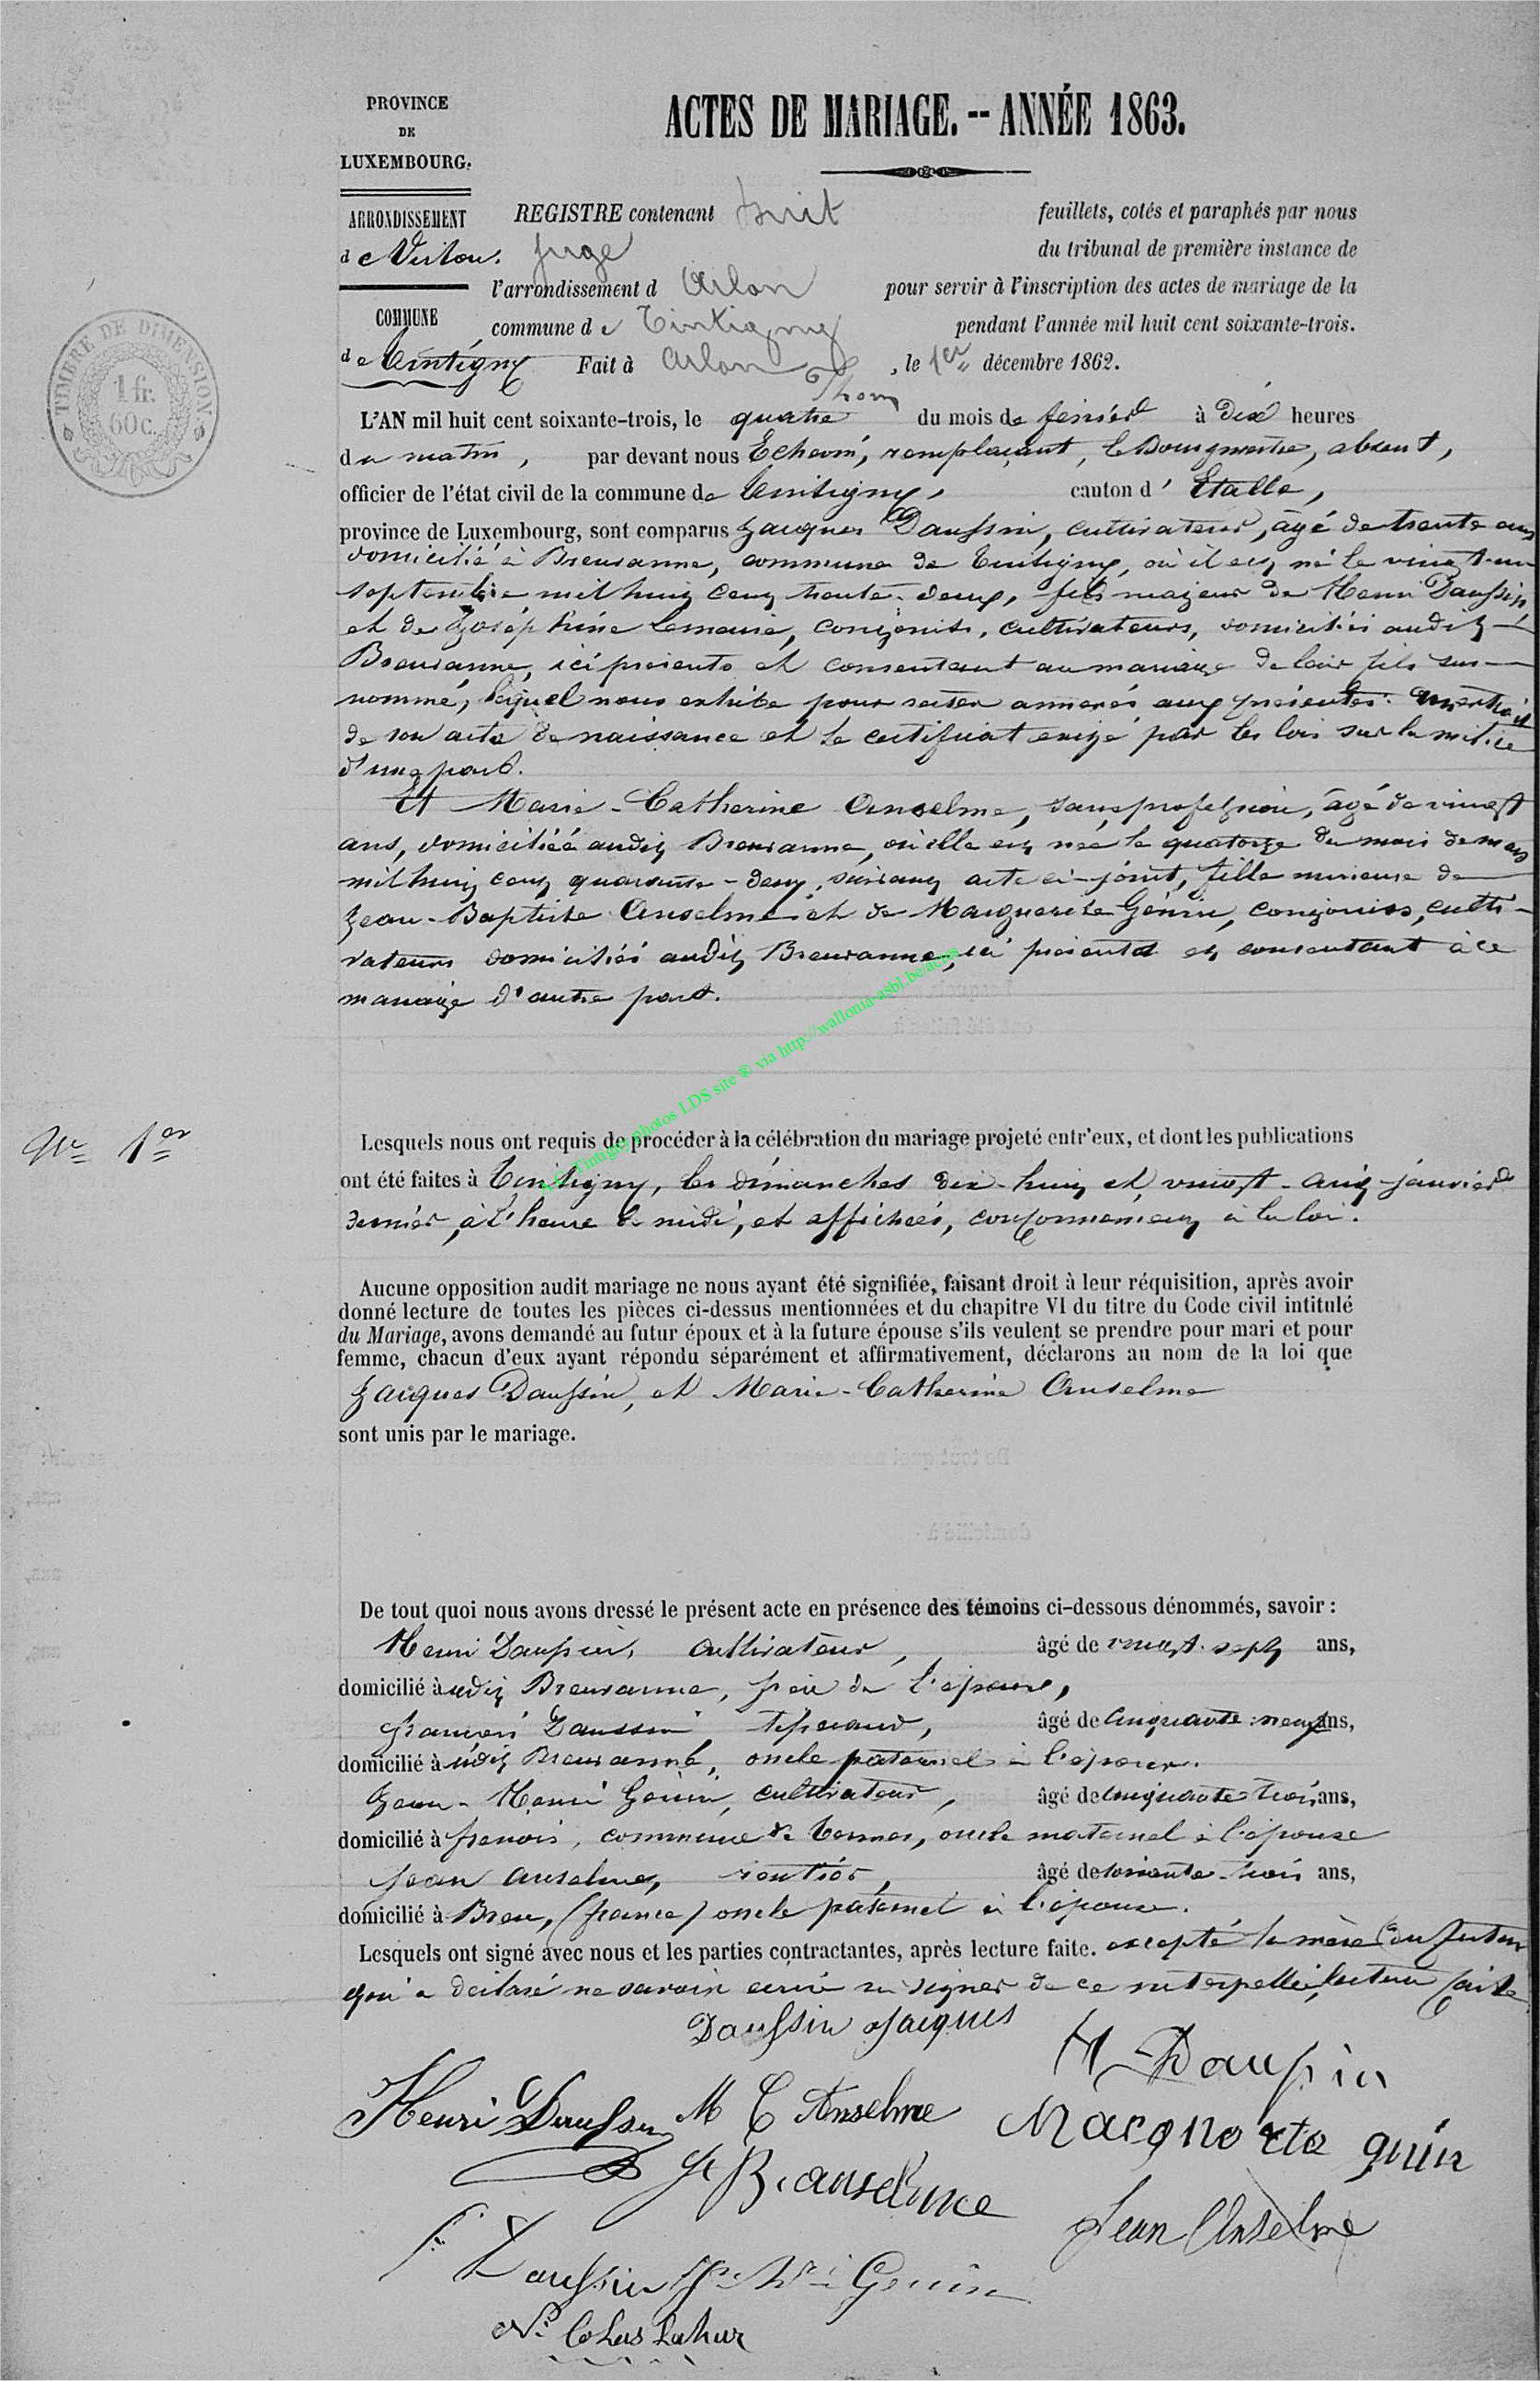 PROVINCE
DE
LUXEMBOURG.
ARRONDISSEMENT
de Virton.
COMMUNE
de Tintigny
ACTES DE MARIAGE. -- ANNÉE 1863.
REGISTRE contenant huit feuillets, cotés et paraphés par nous
juge du tribunal de première instance de
l'arrondissement d Arlon pour servir à l'inscription des actes de mariage de la
commune de Tintigny pendant l'année mil huit cent soixante-trois.
Fait à Arlon, le 1er décembre 1862.
TIMBRE DE DIMENSION
1 fr.
60 c.
L'AN mil huit cent soixante-trois, le quatre du mois de février à dix heures
du matin, par devant nous Échevin, remplaçant, le Bourgmestre, absent,
officier de l'état civil de la commune de Tintigny, canton d' Etalle,
province de Luxembourg, sont comparus Jacques Daussin, cultivateur, âgé de trente ans
domicilié à Breuvanne, commune de Tintigny, où il est né le vingt-un
septembre mil huit cent trente-deux, fils majeur de Henri Daussin
et de Joséphine Lemaire, conjoints, cultivateurs, domiciliés audit
Breuvanne, ici présents et consentant au mariage de leur fils sus-
nommé, lequel nous exhibe pour rester annexés aux présentes: un extrait
de son acte de naissance et le certificat exigé par les lois sur la milice
d'une part.
Et Marie-Catherine Anselme, sans profession, âgé de vingt
ans, domiciliée audit Breuvanne, où elle est née le quatorze du mois de mars
mil huit cent quarante-deux, suivant acte ci-joint, fille mineure de
Jean-Baptiste Anselme et de Marguerite Génin, conjoints, culti-
vateurs domiciliés audit Breuvanne, ici présents et consentant à ce
mariage d'autre part.
photos LDS site ® via http://wallonia-asbl.be/actes
N° 1er
Lesquels nous ont requis de procéder à la célébration du mariage projeté entr'eux, et dont les publications
ont été faites à Tintigny, les dimanches dix-huit et vingt-cinq janvier
dernier, à l'heure de midi, et affichées, conformément à la loi.
Aucune opposition audit mariage ne nous ayant été signifiée, faisant droit à leur réquisition, après avoir
donné lecture de toutes les pièces ci-dessus mentionnées et du chapitre VI du titre du Code civil intitulé
du Mariage, avons demandé au futur époux et à la future épouse s'ils veulent se prendre pour mari et pour
femme, chacun d'eux ayant répondu séparément et affirmativement, déclarons au nom de la loi que
Jacques Daussin, et Marie-Catherine Anselme
sont unis par le mariage.
De tout quoi nous avons dressé le présent acte en présence des témoins ci-dessous dénommés, savoir :
Henri Daussin, cultivateur, âgé de vingt-sept ans,
domicilié à udit Breuvanne, frère de l'époux,
François Daussin, tisserand, âgé de cinquante-neuf ans,
domicilié à udit Breuvanne, oncle paternel à l'époux.
Jean-Henri Génin, cultivateur, âgé de cinquante trois ans,
domicilié à frenois, commune de Termes, oncle maternel à l'épouse
Jean Anselme, rentier, âgé de soixante-trois ans,
domicilié à (france) oncle paternel à l'épouse.
Lesquels ont signé avec nous et les parties contractantes, après lecture faite. excepté la mère du futur
qui a déclaré ne savoir écrire ni signer de ce interpellée, lecture faite
Daussin Jacques
H Daussin
Henri Daussin M C Anselme
J B. anselme
Jean Anselme
F. Daussin J. H. Génin